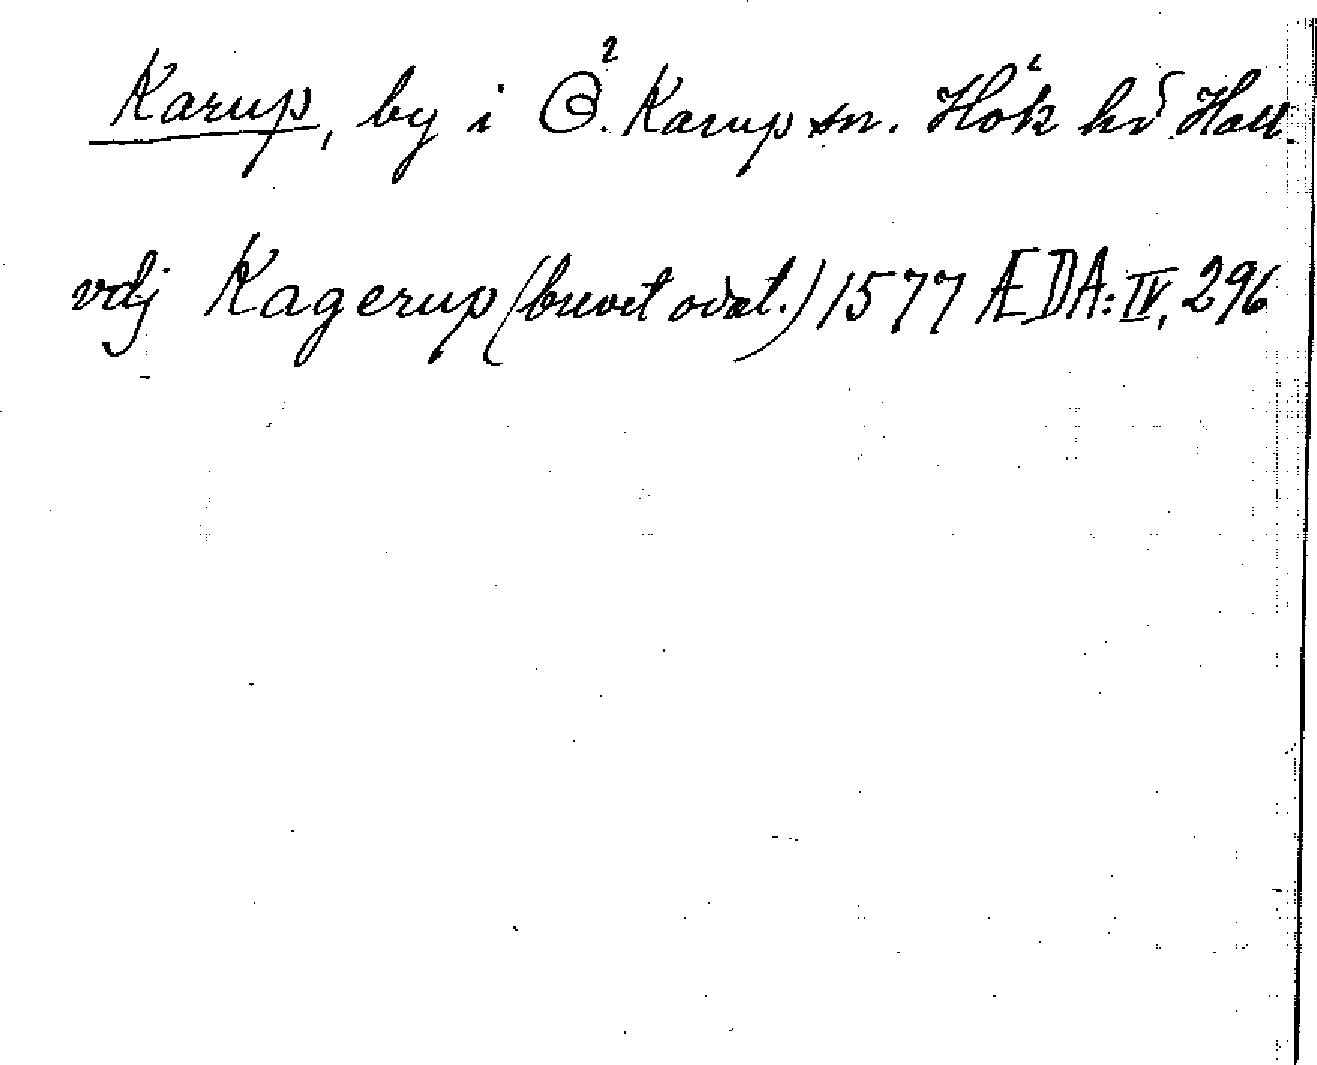 Karup, by i Ö. Karup sn. Hök hd Hall.
vdj Kagerup (brevet odat.) 1577 ÆDA: IV, 296